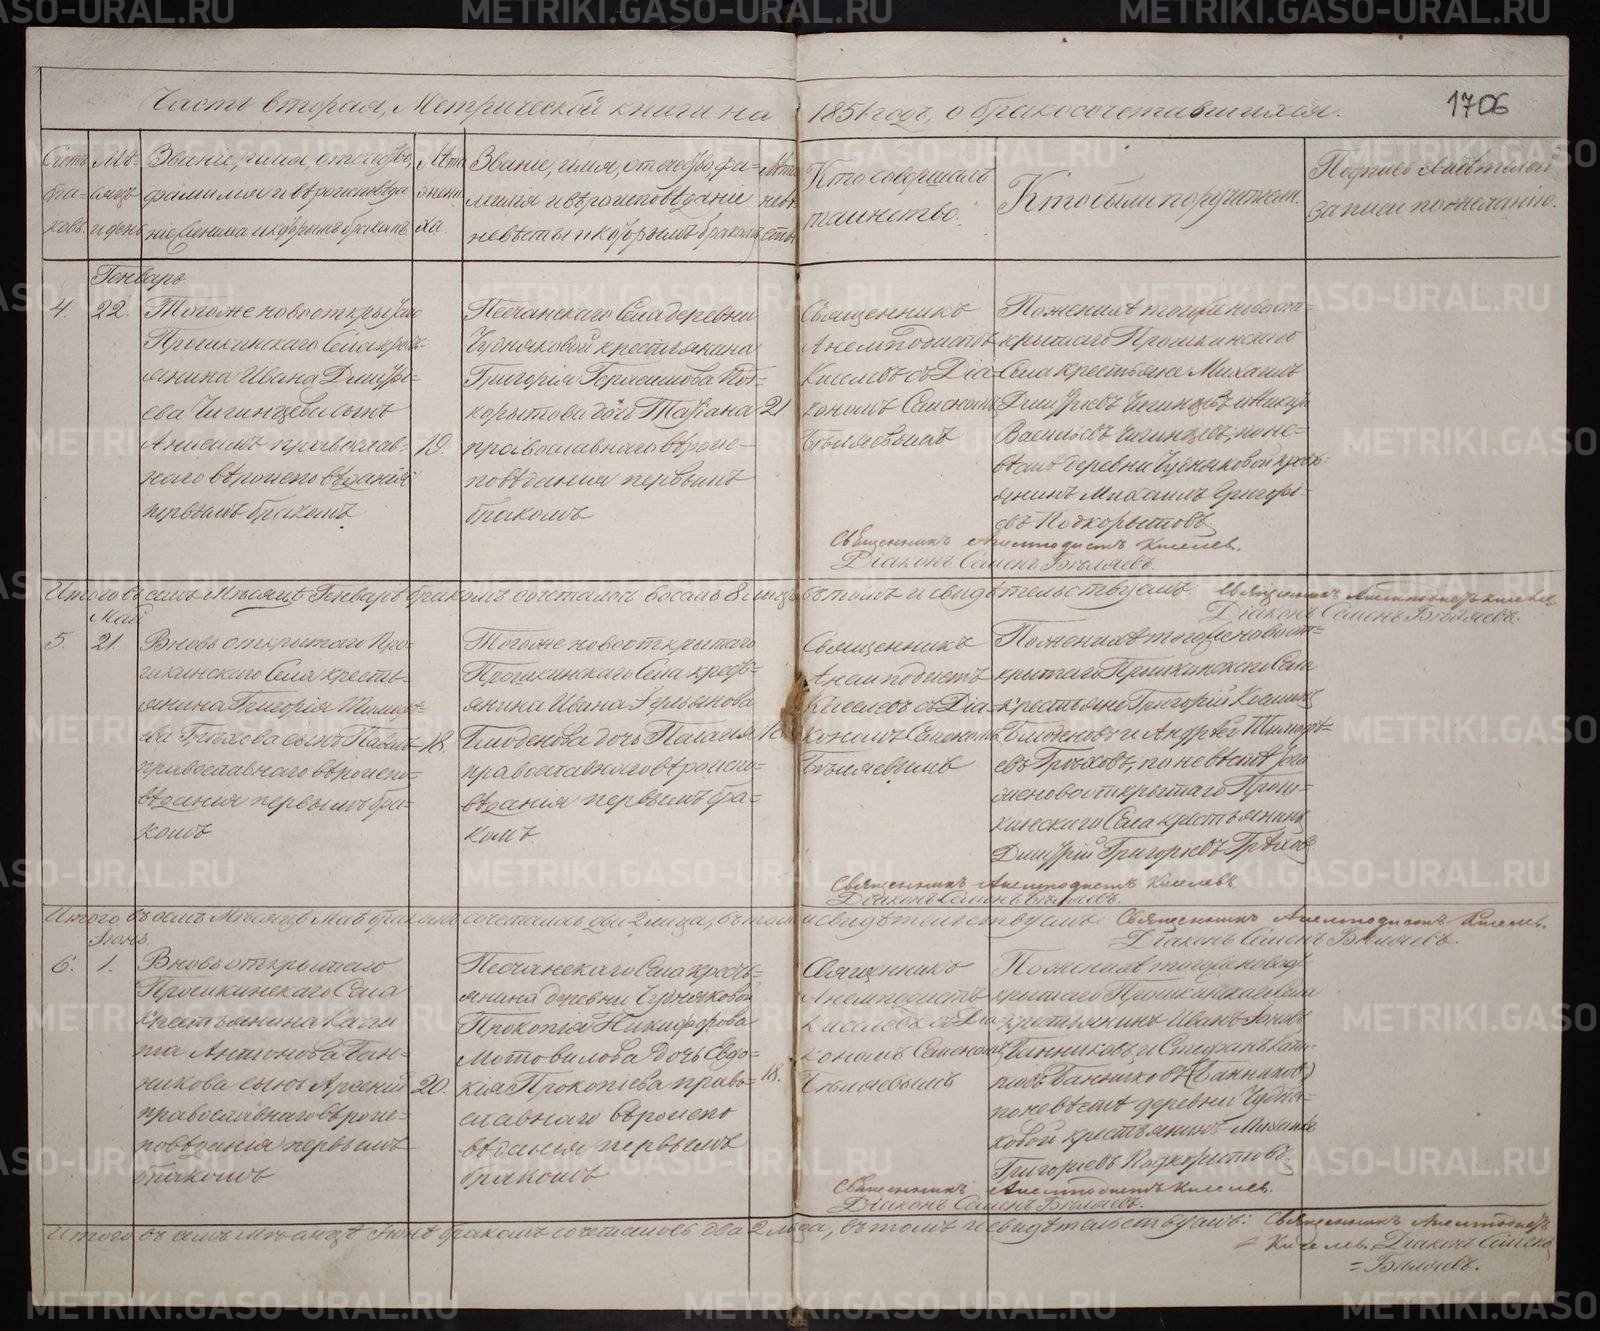 Часть вторая, Метрической книги на 1851 годъ, о бракосочетавшихся.
1706
Счетъ браковъ.
Мѣсяцъ и день
Званіе, имя, отчество, фамилія и вѣроисповѣданіе жениха и которымъ бракомъ.
Лѣта жениха.
Званіе, имя, отчество, фамилія и вѣроисповѣданіе невѣсты и которымъ бракомъ
Лѣта невѣсты
Кто совершалъ таинство.
Кто были поручители.
Подпись свидѣтелей записи по желанію.
Генварь
4.
22.
Тогоже новооткрытаго
Прошкинскаго Села кресть-
янина Ивана Димитрі-
ева Чигинцева сынъ
Анисимъ православ-
наго вѣроисповѣданія
первымъ бракомъ
19.
Песчанскаго Села деревни
Чудняковой крестьянина
Григорія Герасимова Под-
корытова дочь Татіана
православнаго вѣроис-
повѣданія первымъ
бракомъ
21
Священникъ
Анемподистъ
Киселевъ съ Діа-
кономъ Симеономъ
Бѣляевымъ
По женихѣ тогоже новоот-
крытаго Прошкинскаго
Села крестьяне Михаилъ
Димитріевъ Чигинцевъ и
Васильевъ Чигинцевъ, по не-
вѣстѣ деревни Чудняковой крест-
янинъ Михаилъ Григорі-
евъ Подкорытовъ
Священникъ Анемподистъ Киселев.
Діаконъ Симеонъ Бѣляевъ.
Итого въ семъ Мѣсяцѣ Генварѣ бракомъ сочеталось восемь 8 лицъ въ томъ и свидѣтельствуемъ: Священникъ Анемподистъ Киселев
Діаконъ Симеонъ Бѣляевъ.
Май
5.
21.
Вновь открытаго Про-
шкинскаго Села кресть-
янина Григорія Тимофѣ-
ева Грѣхова сынъ Павелъ
православнаго вѣроиспо-
вѣданія первымъ бра-
комъ
18.
Тогоже новооткрытаго
Прошкинскаго Села кресть-
янина Ивана
дочь Палагія
православнаго вѣроиспо-
вѣданія первымъ бра-
комъ.
Священникъ
Анемподистъ
Киселевъ съ Діа-
кономъ Симеономъ
Бѣляевымъ
По женихѣ тогоже новоот-
крытаго Прошкинскаго Села
крестьяне Григорій
и Андрей Тимофѣ-
евъ Грѣховъ, по невѣстѣ того
же новооткрытаго Прош-
кинскаго Села крестьянинъ
Димитрій Григорьевъ Грѣховъ
Священникъ Анемподистъ Киселевъ
Діаконъ Симеонъ Бѣляевъ.
Итого въ семъ Мѣсяцѣ Маѣ бракомъ сочеталось два 2 лица, въ томъ и свидѣтельствуемъ: Священникъ Анемподистъ Киселев.
Діаконъ Симеонъ Бѣляевъ.
Іюнь.
6.
1.
Вновь открытаго
Прошкинскаго Села
крестьянина Капи-
на Антонова Бан-
никова сынъ Арсеній
православнаго вѣроис-
повѣданія первымъ
бракомъ
20.
Песчанскаго Села кресть-
янина деревни Чудняковой
Прокопія Никифорова
Мотовилова дочь Евдо-
кія Прокопіева право-
славнаго вѣроиспо
вѣданія первымъ
бракомъ
18.
Священникъ
Анемподистъ
Киселевъ съ Діа
кономъ Симеономъ
Бѣляевымъ
По женихѣ тогоже новоот
крытаго Прошкинскаго Села
крестьянинъ Иванъ
Банниковъ, и Стефанъ
Банниковъ (Банниковъ)
по невѣстѣ деревни Чудня-
ковой крестьянинъ Михаилъ
Григоріевъ Подкорытовъ.
Священникъ Анемподистъ Киселев.
Діаконъ Симеонъ Бѣляевъ.
Итого въ семъ Мѣсяцѣ Іюнѣ бракомъ сочеталось два 2 лица, въ томъ и свидѣтельствуемъ: Священникъ Анемподистъ
Киселев. Діаконъ Симеонъ
Бѣляевъ.
METRIKI.GASO-URAL.RU